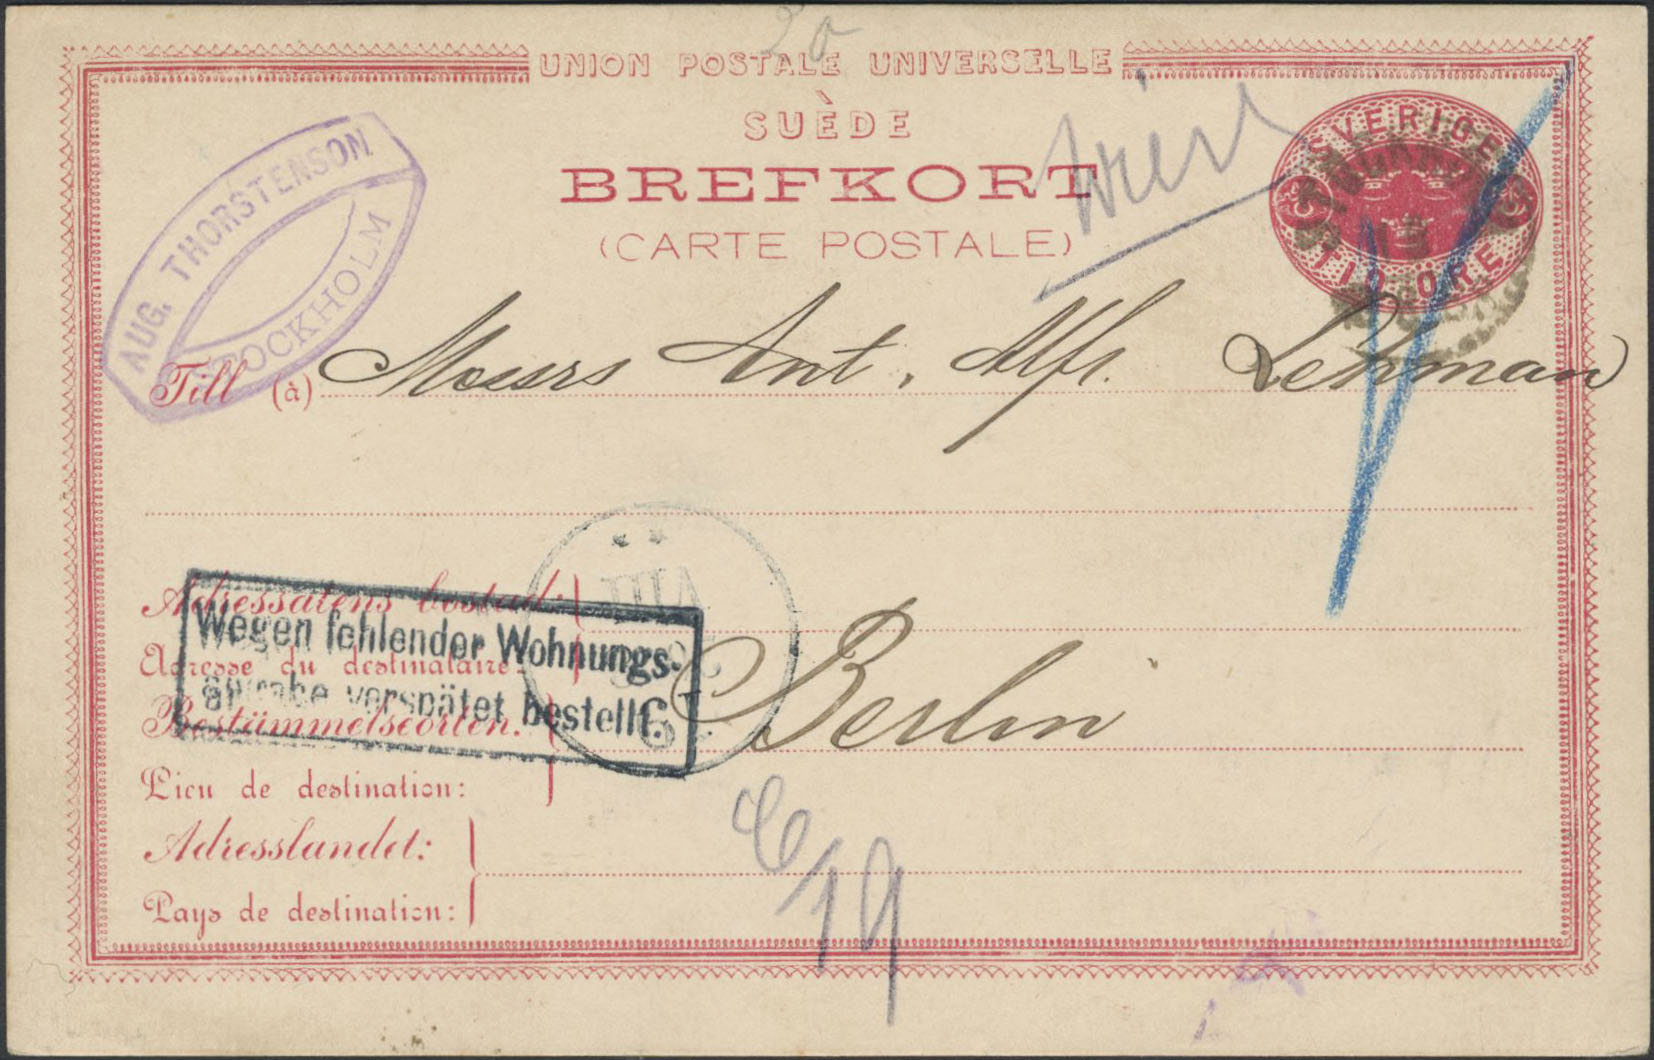 UNION POSTALE UNIVERSELLE
SUÈDE
BREFKORT
(CARTE POSTALE)
SVERIGE
TIO ÖRE
AUG. THORSTENSON
STOCKHOLM
Till (à) Messrs Ant. Alfr. Lehman
Adressatens bostad:
Adresse du destinataire:
Wegen fehlender Wohnungs-
angabe verspätet bestellt.
Bestämmelseorten: Berlin
Lieu de destination:
Adresslandet:
Pays de destination:
19